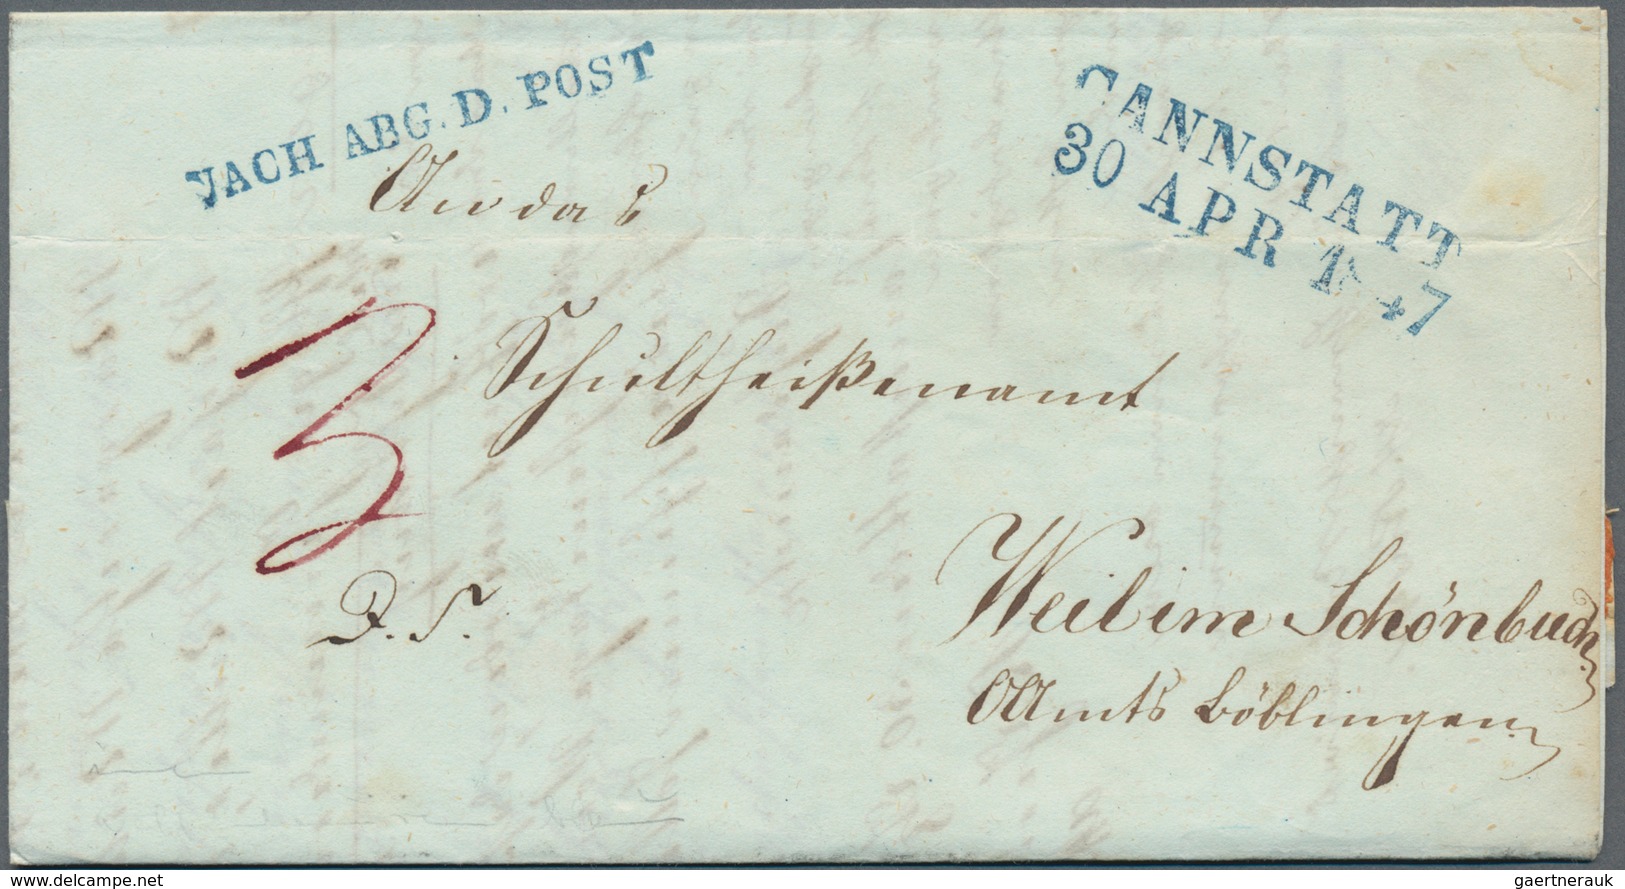 NACH ABG. D. POST
CANNSTATT
30 APR 1847
An das
Schultheißenamt
3
D. S.
Weil im Schönbuch
OAmts Böblingen
www.delcampe.net
gaertnerauk